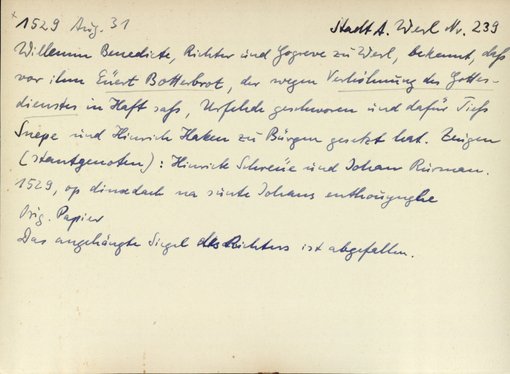 1529 Aug. 31 Stadt A. Werl Nr. 239
Willemm Benedicte, Richter und Gogreve zu Werl, bekennt, daß
vor ihm Evert Botterbrot, der wegen Verhöhnung des Gottes-
dienstes in Haft saß, Urfehde geschworen und dafür Tieß
Snepe und Hinrich Haken zu Bürgen gesetzt hat. Zeugen
(stantgenoten): Hinrich Schreue und Johan Rurman.
1529, op dinxedach na sunte Johans enthouynghe
Orig. Papier
Das angehängte Siegel des Richters ist abgefallen.